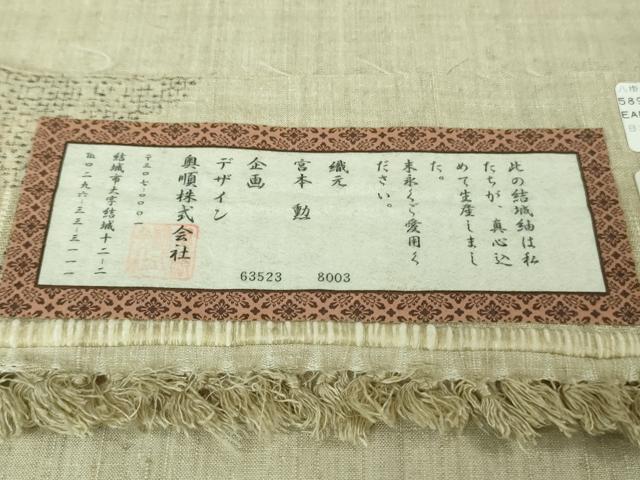 此の結城紬は私
たちが、真心込
めて生産しまし
た。
末永くご愛用く
ださい。
織元
宮本 勲
企画
デザイン
奥順株式会社
〒三〇七-〇〇〇一
結城市大字結城十二-二
℡〇二九六-三三-三一一一
63523 8003
八掛
589
EA